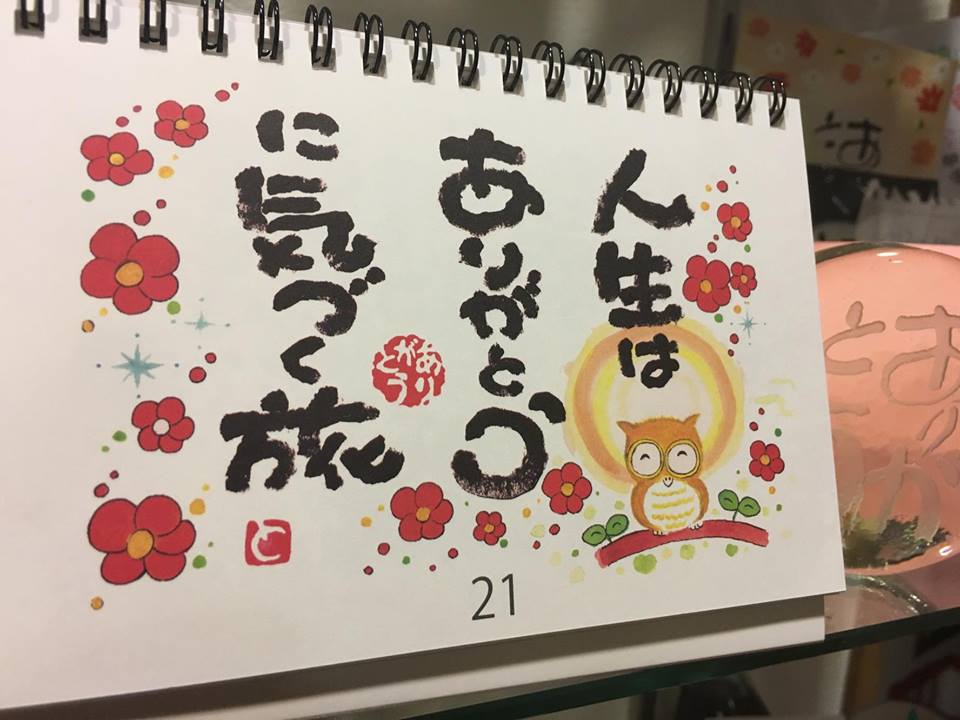 人生は
ありがとう
に気づく旅
あり
がとう
と
21